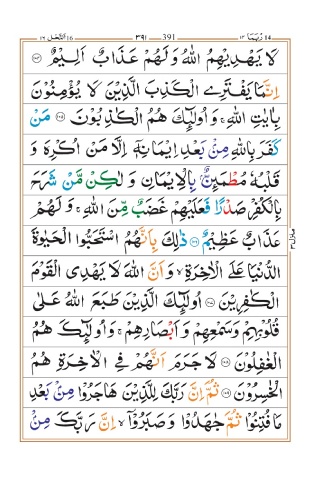 النحل ١٦ 16 ٣٩١ 391 ربما ١٤ 14
لَا يَهْدِيْهِمُ اللّٰهُ وَلَهُمْ عَذَابٌ اَلِيْمٌ ﴿١٠٤﴾
اِنَّمَا يَفْتَرِي الْكَذِبَ الَّذِيْنَ لَا يُؤْمِنُوْنَ
بِاٰيٰتِ اللّٰهِ ۚ وَاُولٰٓئِكَ هُمُ الْكٰذِبُوْنَ ﴿١٠٥﴾ مَنْ
كَفَرَ بِاللّٰهِ مِنْۢ بَعْدِ اِيْمَانِهٖٓ اِلَّا مَنْ اُكْرِهَ وَ
قَلْبُهٗ مُطْمَىِٕنٌّۢ بِالْاِيْمَانِ وَلٰكِنْ مَّنْ شَرَحَ
بِالْكُفْرِ صَدْرًا فَعَلَيْهِمْ غَضَبٌ مِّنَ اللّٰهِ ۚ وَلَهُمْ
عَذَابٌ عَظِيْمٌ ﴿١٠٦﴾ ذٰلِكَ بِاَنَّهُمُ اسْتَحَبُّوا الْحَيٰوةَ
الدُّنْيَا عَلَى الْاٰخِرَةِ ۙ وَاَنَّ اللّٰهَ لَا يَهْدِي الْقَوْمَ
الْكٰفِرِيْنَ ﴿١٠٧﴾ اُولٰٓئِكَ الَّذِيْنَ طَبَعَ اللّٰهُ عَلٰى
قُلُوْبِهِمْ وَسَمْعِهِمْ وَاَبْصَارِهِمْ ۚ وَاُولٰٓئِكَ هُمُ
الْغٰفِلُوْنَ ﴿١٠٨﴾ لَا جَرَمَ اَنَّهُمْ فِي الْاٰخِرَةِ هُمُ
الْخٰسِرُوْنَ ﴿١٠٩﴾ ثُمَّ اِنَّ رَبَّكَ لِلَّذِيْنَ هَاجَرُوْا مِنْۢ بَعْدِ
مَا فُتِنُوْا ثُمَّ جٰهَدُوْا وَصَبَرُوْٓا ۙ اِنَّ رَبَّكَ مِنْۢ
منزل ٣